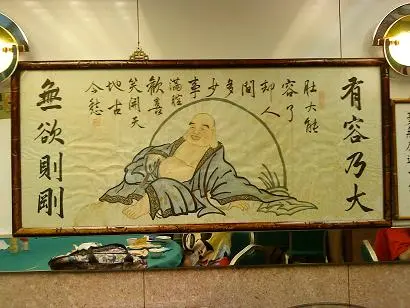 有容乃大
肚大能
容了
却人
間
多
少
事
滿腔
歡喜
笑開天
地古
今愁
無欲則剛